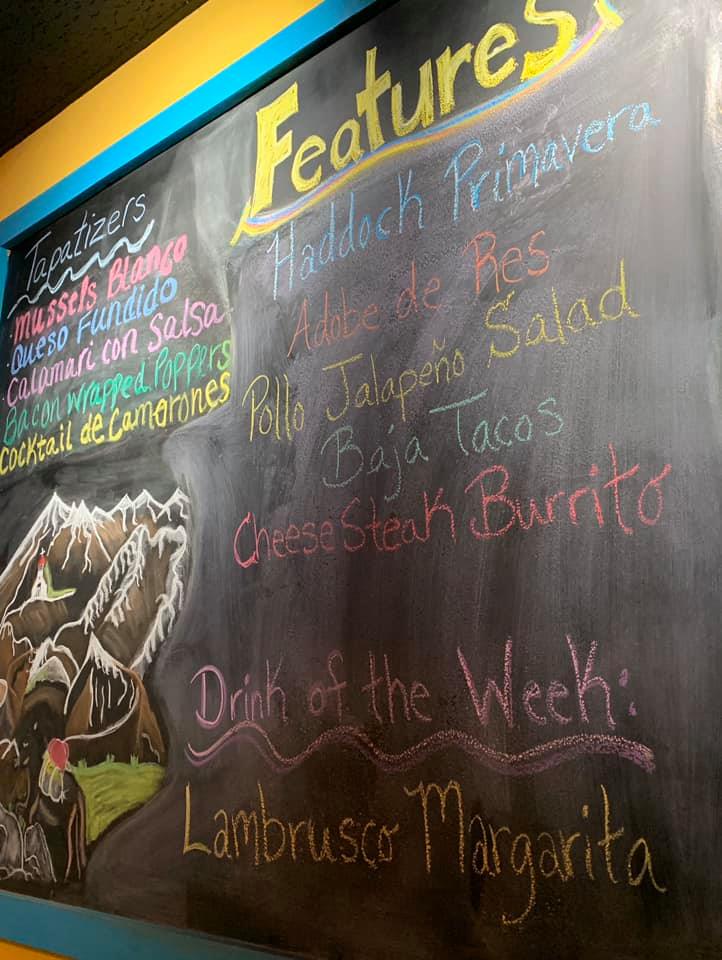 Tapatizers
Mussels Blanco
Queso Fundido
Calamari con Salsa
Bacon Wrapped Poppers
Cocktail de Camarones
Features
Haddock Primavera
Adobe de Res
Pollo Jalapeño Salad
Baja Tacos
Cheese Steak Burrito
Drink of the Week:
Lambrusco Margarita